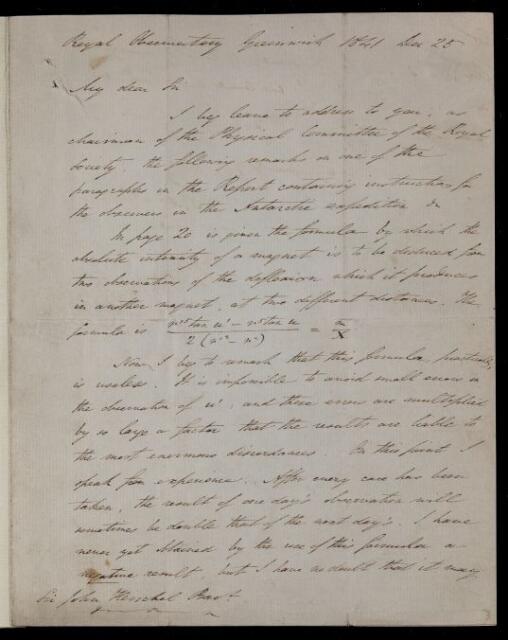 Royal Observatory Greenwich 1841 Dec 25
My dear Sir
I beg leave to address to you, as
chairman of the Physical Committee of the Royal
Society, the following remarks on one of the
paragraphs in the Report containing instructions for
the observers in the Antarctic expedition &c
In page 20 is given the formula by which the
absolute intensity of a magnet is to be deduced from
two observations of the deflexion which it produces
in another magnet, at two different distances. The
formula is (r'⁵ tan u' − r⁵ tan u) / 2 (r'² − r²) = m / X
Now I beg to remark that this formula, practically,
is useless. It is impossible to avoid small errors in
the observation of u', and these errors are multiplied
by so large a factor that the results are liable to
the most enormous discordances. On this point I
speak from experience. After every care has been
taken, the result of one day's observation will
sometimes be double that of the next day's. I have
never yet obtained by the use of this formula a
negative result, but I have no doubt that it may
Sir John Herschel Bart